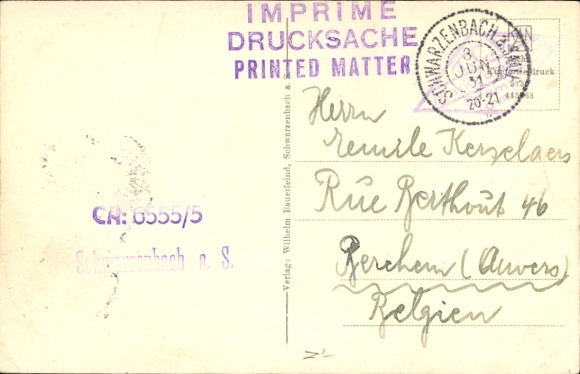 IMPRIME
DRUCKSACHE
PRINTED MATTER
SCHWARZENBACH
3
JUNI
31
20-21
Herrn
Kerselaers
Rue Berthout 46
Berchem (Anvers)
Belgien
CA: 6555/5
Schwarzenbach a. S.
Verlag: Wilhelm Bauerfeind, Schwarzenbach a. S.